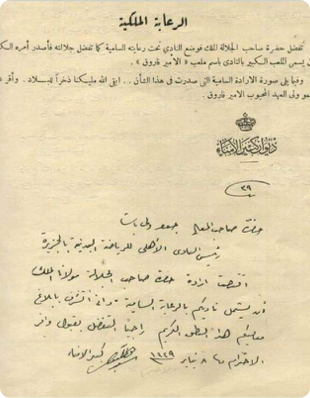 الرعاية الملكية
تفضل حضرة صاحب الجلالة الملك فوضع النادى تحت رعايته السامية كما تفضل جلالته فأصدر أمره الـ
يسمى الملعب الكبير بالنادى باسم ملعب « الامير فاروق » .
وفيما يلى صورة الارادة السامية التى صدرت فى هذا الشأن .. ابقى الله مليكنا ذخراً للبـلاد . وأقر
ولى العهد المحبوب الامير فاروق .
ديوان كبير الأمناء
٣٩
حضرة صاحب المعالى جعفر ولى باشا
رئيس النادى الأهلى للرياضة البدنية بالجزيرة
اقتضت ارادة حضرة صاحب الجلالة مولانا الملك
ناديكم بالرعاية السامية
معاليكم هذا النطق الكريم راجيا التفضل بقبول وافر
الاحترام ٨ يناير ١٩٢٩ كبير الأمناء